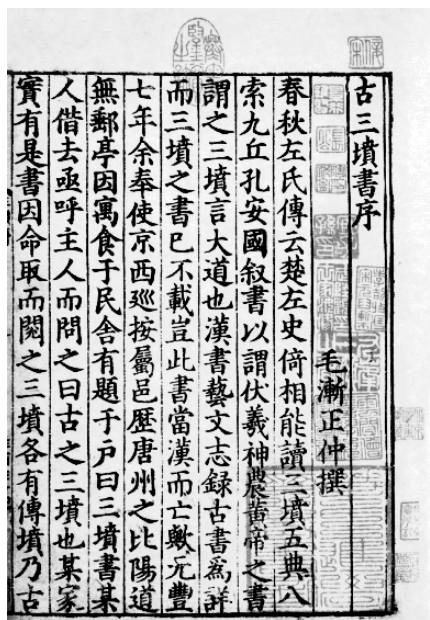 古三墳書序
毛漸正仲撰
春秋左氏傳云楚左史倚相能讀三墳五典八
索九丘孔安國叙書以謂伏羲神農黃帝之書
謂之三墳言大道也漢書藝文志錄古書爲詳
而三墳之書已不載豈此書當漢而亡歟元豐
七年余奉使京西廵按屬邑歷唐州之比陽道
無郵亭因寓食于民舍有題于戶曰三墳書某
人借去亟呼主人而問之曰古之三墳也某家
實有是書因命取而閱之三墳各有傳墳乃古